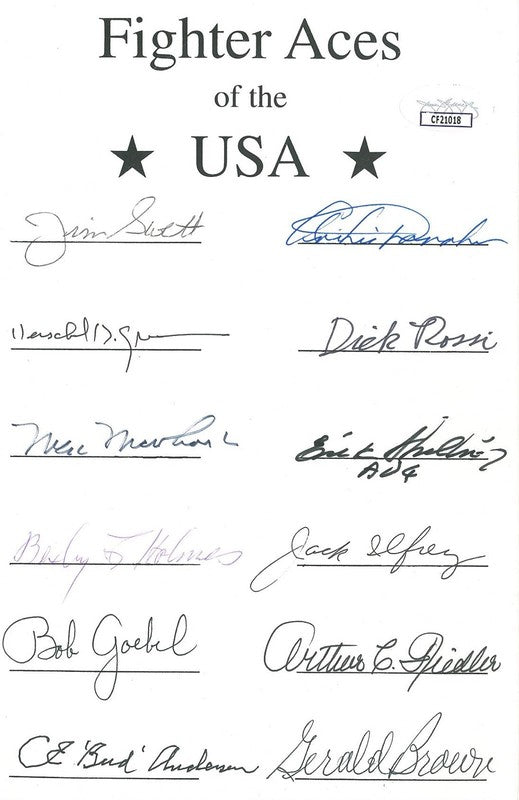 Fighter Aces
of the
USA
CF21018
Jim Swett
Herschel H. Green
Dick Rossi
Erik Shilling
AVG
Besby F Holmes
Jack Ilfrey
Bob Goebel
Arthur C. Fiedler
CE 'Bud' Anderson
Gerald Brown